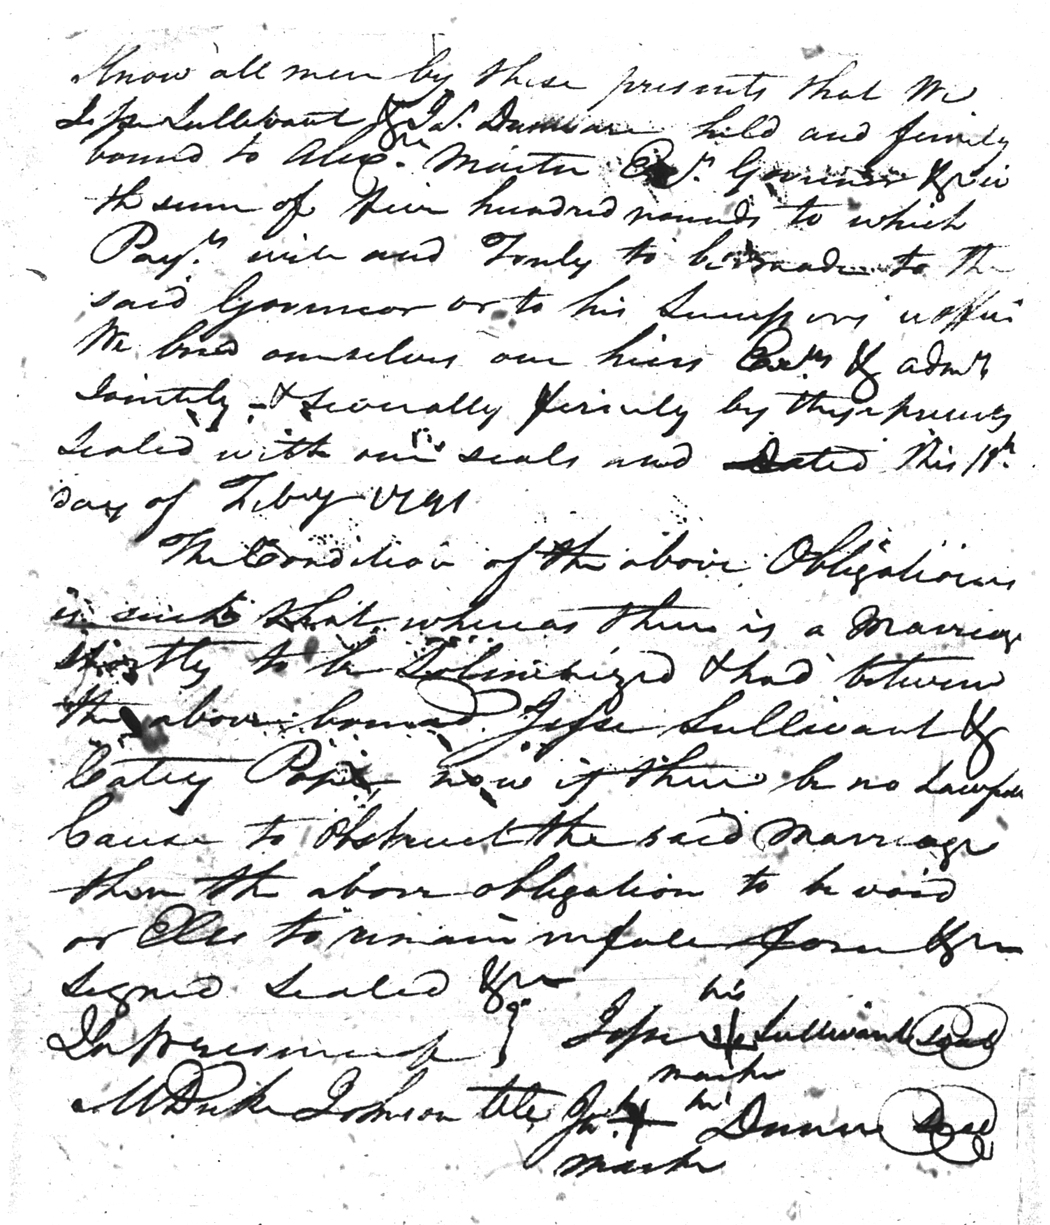 Know all men by these presents that We
Jesse Sullivant & Ja.s held and firmly
bound to Alex.r Martin Esqr. Governor &c in
the sum of five hundred pounds to which
Paym.t will and Truly to be made to the
said Governor or to his Successors in office
We bind ourselves our heirs Exrs & admrs
Jointly & Severally firmly by these presents
Sealed with our seals and Dated this 18th
day of Feby 1791
The Condition of the above Obligation
is such that whereas there is a Marriage
shortly to be Solemnized & had between
the above bound Jesse Sullivant &
Catey Pope now if there be no Lawful
Cause to obstruct the said Marriage
then the above obligation to be void
or Else to remain in full force &c
signed sealed &c
In presence of } Jesse his + mark Sullivant Seal
M Duke Johnson Jas. his + mark Seal